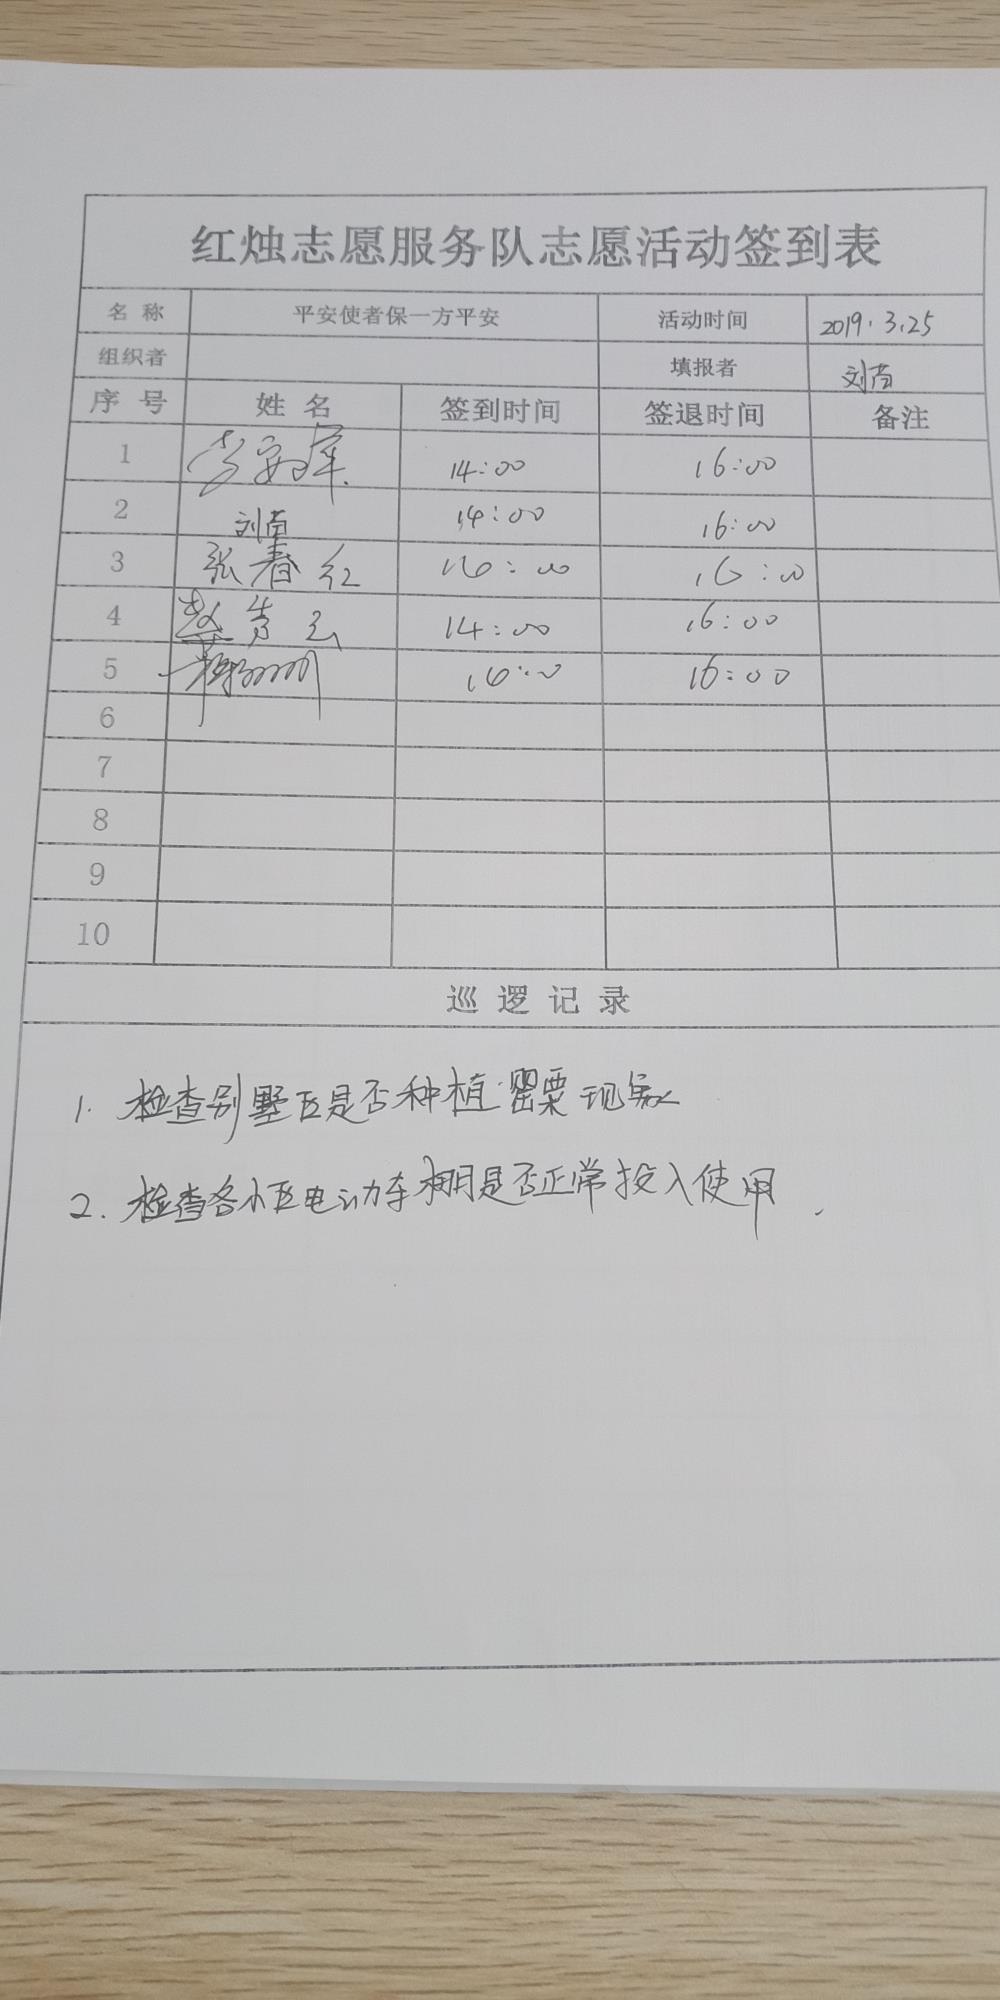 红烛志愿服务队志愿活动签到表
名 称 平安使者保一方平安 活动时间 2019.3.25
组织者 填报者 刘苗
序 号 姓 名 签到时间 签退时间 备注
1 14:00 16:00
2 刘苗 14:00 16:00
3 张春红 16:00
4 14:00 16:00
5 16:00
6
7
8
9
10
巡 逻 记 录
1. 检查别墅区是否种植罂粟现象
2. 检查各小区电动车棚是否正常投入使用.